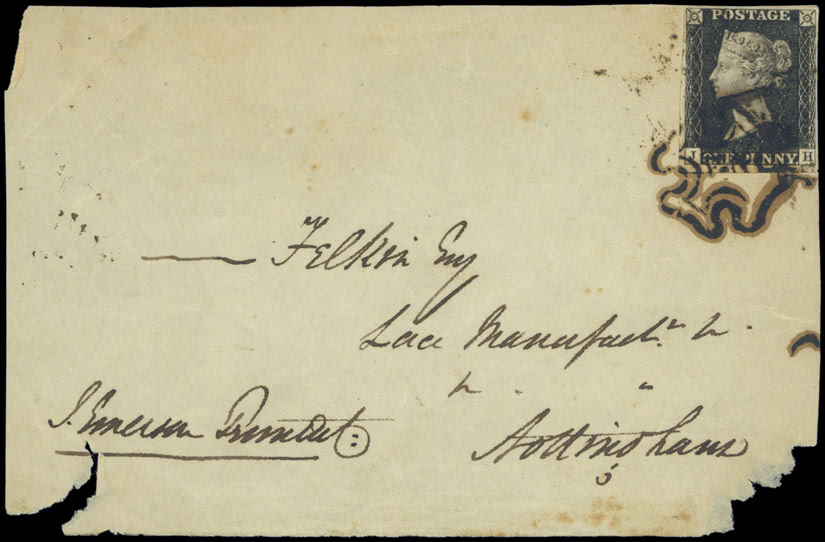 POSTAGE
J ONE PENNY H
Felkin Esq
Lace Manufactr
J. Emerson Tennent
Nottingham